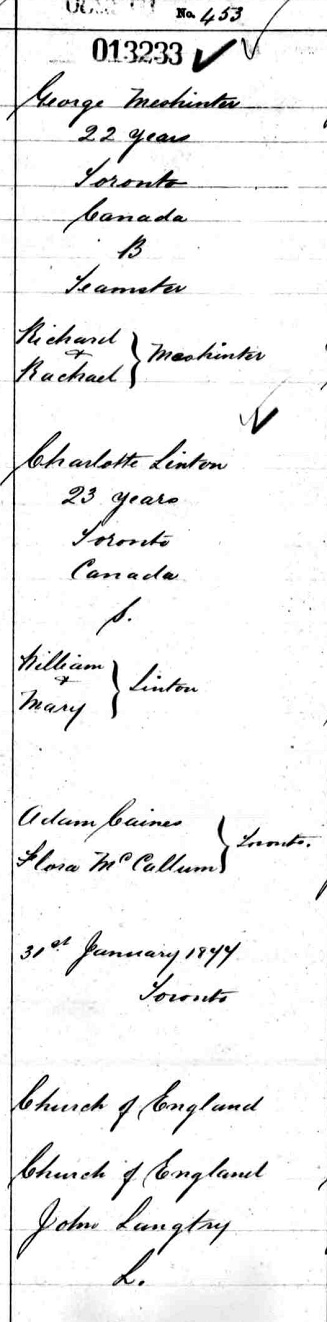 No. 453
013233
George Meshinter
22 years
Toronto
Canada
B
Teamster
Richard
&
Rachael } Meshinter
Charlotte Linton
23 years
Toronto
Canada
S.
William
&
Mary } Linton
Adam Caines
Flora McCallum } Toronto.
31st January 1877
Toronto
Church of England
Church of England
John Langtry
L.